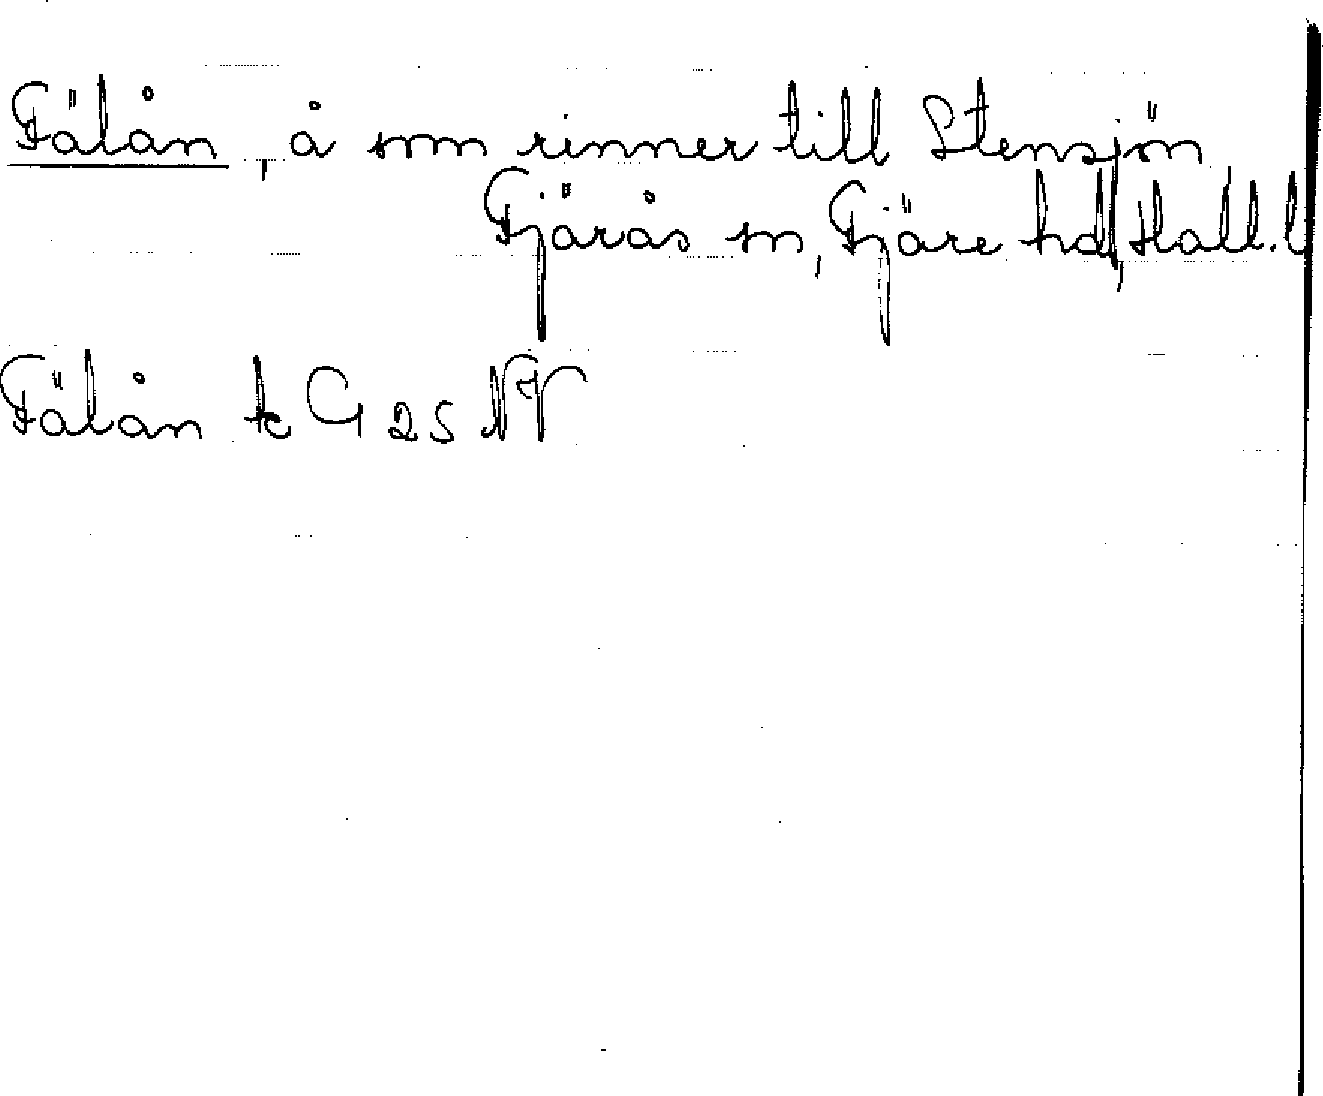 Fälån, å som rinner till Stensjön
Fjärås sn, Fjäre hd, Hall. l
Fälån tc G 25 NV